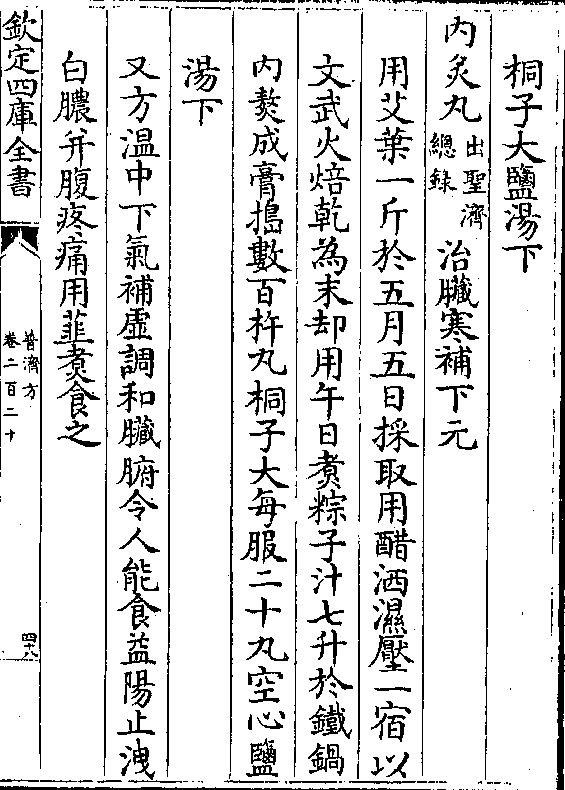 桐子大鹽湯下
內炙丸出聖濟總錄治臟寒補下元
用艾葉一斤於五月五日採取用醋洒濕壓一宿以
文武火焙乾為末却用午日煑粽子汁七升於鐵鍋
內熬成膏搗數百杵丸桐子大每服二十丸空心鹽
湯下
又方溫中下氣補虛調和臟腑令人能食益陽止洩
白膿并腹疼痛用韮煑食之
欽定四庫全書
普濟方
卷二百二十
四十八